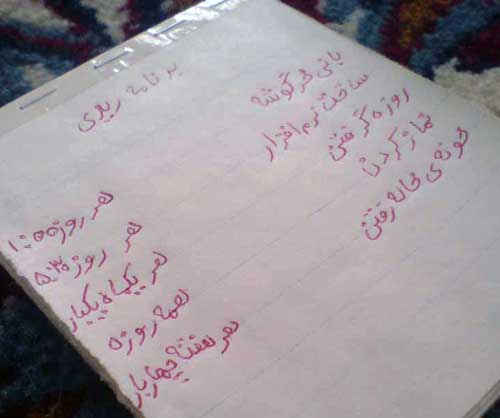 برنامه ریزی
بانی خرگوشه
ساخت نرم افزار
روزه گرفتن
نماز کردن
خونه ی خاله رفتن
هر روز
هر روز
هر یکماه یکبار
همه روزه
هر هفته چهار بار